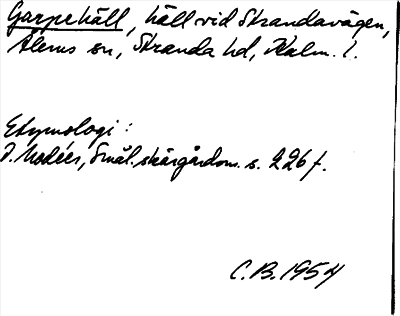 Garpehäll, häll vid Strandavägen,
Ålems sn, Stranda hd, Kalm. l.
Etymologi:
I. Modéer, Smål. skärgårdsn. s. 226 f.
C.B. 1954